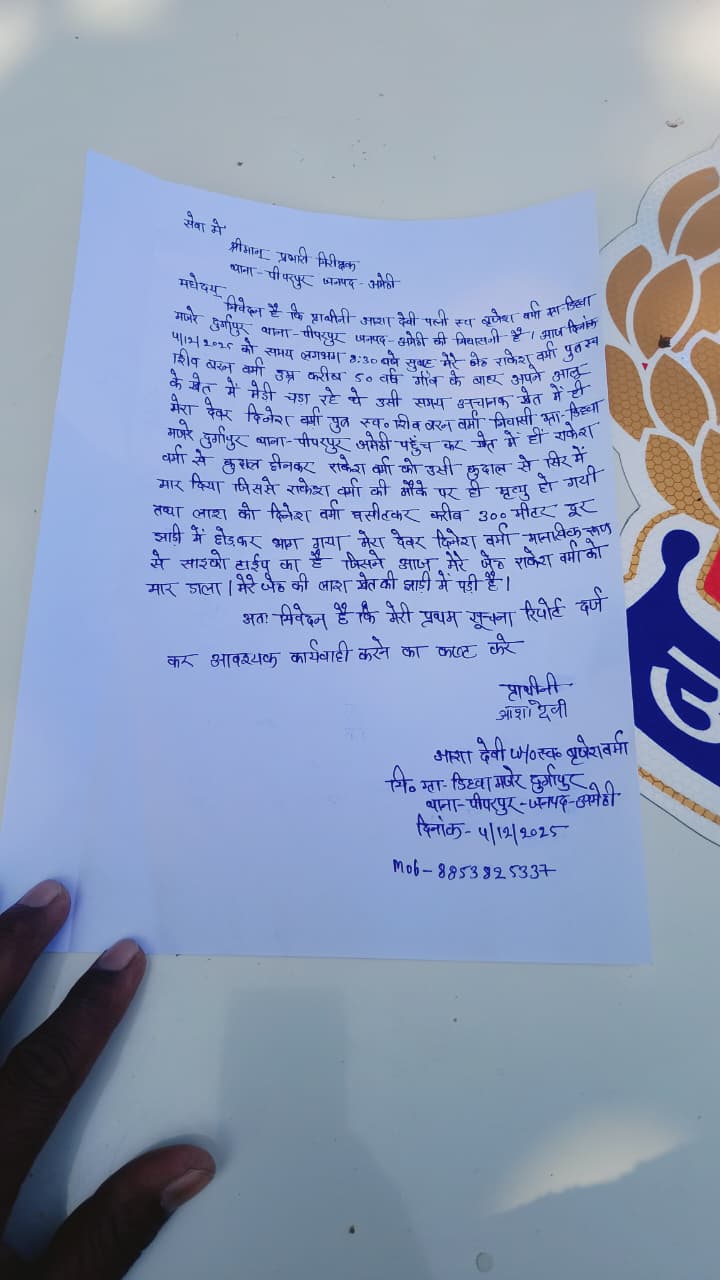 सेवा में
श्रीमान् प्रभारी निरीक्षक
थाना - पीपरपुर जनपद - अमेठी
महोदय
निवेदन है कि प्रार्थीनी आशा देवी पत्नी स्व बृजेश वर्मा ग्रा - डिहवा
मजरे दुर्गापुर थाना - पीपरपुर जनपद - अमेठी की निवासनी है। आज दिनांक
4/12/2025 को समय लगभग 8:30 बजे सुबह मेरे जेठ राकेश वर्मा पुत्र स्व
शिव बरन वर्मा उम्र करीब 50 वर्ष गाँव के बाहर अपने आलू
के खेत में मेडी चढा रहे थे उसी समय अचानक खेत में ही
मेरा देवर दिनेश वर्मा पुत्र स्व० शिव बरन वर्मा निवासी ग्रा - डिहवा
मजरे दुर्गापुर थाना - पीपरपुर अमेठी पहुँच कर खेत में ही राकेश
वर्मा से कुदाल छीनकर राकेश वर्मा को उसी कुदाल से सिर में
मार दिया जिससे राकेश वर्मा की मौके पर ही मृत्यु हो गयी
तथा लाश को दिनेश वर्मा घसीटकर करीब 300 मीटर दूर
झाड़ी में छोडकर भाग गया मेरा देवर दिनेश वर्मा मानसिक रूप
से साइको टाईप का है जिसने आज मेरे जेठ राकेश वर्मा को
मार डाला। मेरे जेठ की लाश खेत की झाडी में पडी है।
अतः निवेदन है कि मेरी प्रथम सूचना रिपोर्ट दर्ज
कर आवश्यक कार्यवाही करने का कष्ट करे
प्रार्थीनी
आशा देवी
आशा देवी w/o स्व० बृजेश वर्मा
नि० ग्रा - डिहवा मजरे दुर्गापुर
थाना - पीपरपुर - जनपद - अमेठी
दिनांक - 4/12/2025
Mob - 8853825337